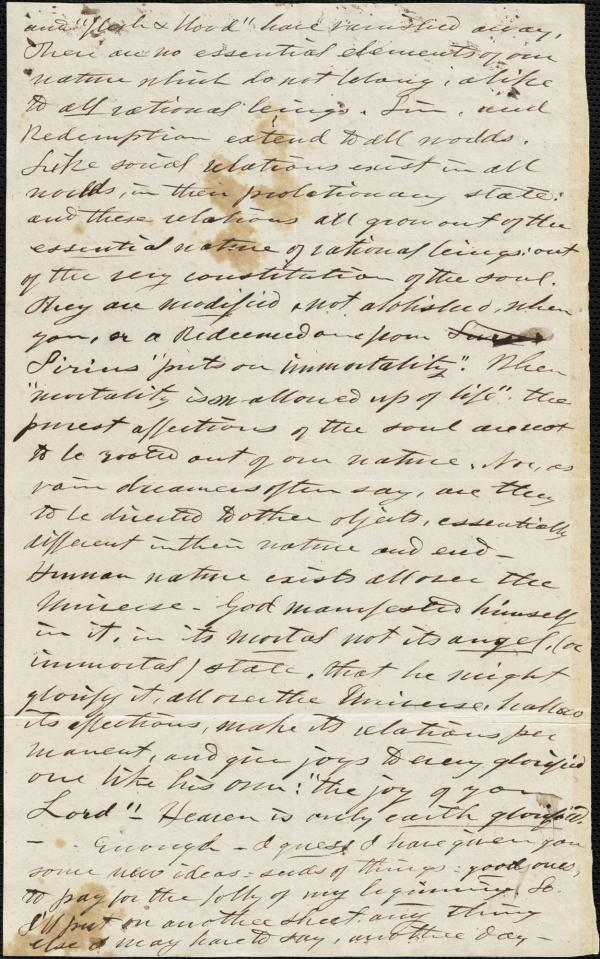 and "flesh & blood" have vanished away.
There are no essential elements of our
nature which do not belong, alike
to all rational beings. Sin, and
Redemption extend to all worlds.
Like social relations exist in all
worlds, in their probationary state:
and these relations all grow out of the
essential nature of rational beings: out
of the very constitution of the soul.
They are modified, not abolished, when
you, or a Redeemed one from
Sirius "puts on immortality". When
"mortality is swallowed up of life" the
purest affections of the soul are not
to be rooted out of our nature. Nor, as
vain dreamers often say, are they
to be directed to other objects, essentially
different in their nature and end -
Human nature exists all over the
Universe - God manifested himself
in it, in its mortal not its angel, (or
immortal) state, that he might
glorify it, all over the Universe, hallow
its affections, make its relations per
manent, and give joys to every glorified
one like his own: "the joy of your
Lord" - Heaven is only earth glorified.
- . Enough - I guess I have given you
some new ideas - seeds of things - good ones,
to pay for the folly of my beginning. So
I'll put on another sheet any thing
else I may have to say, another day -